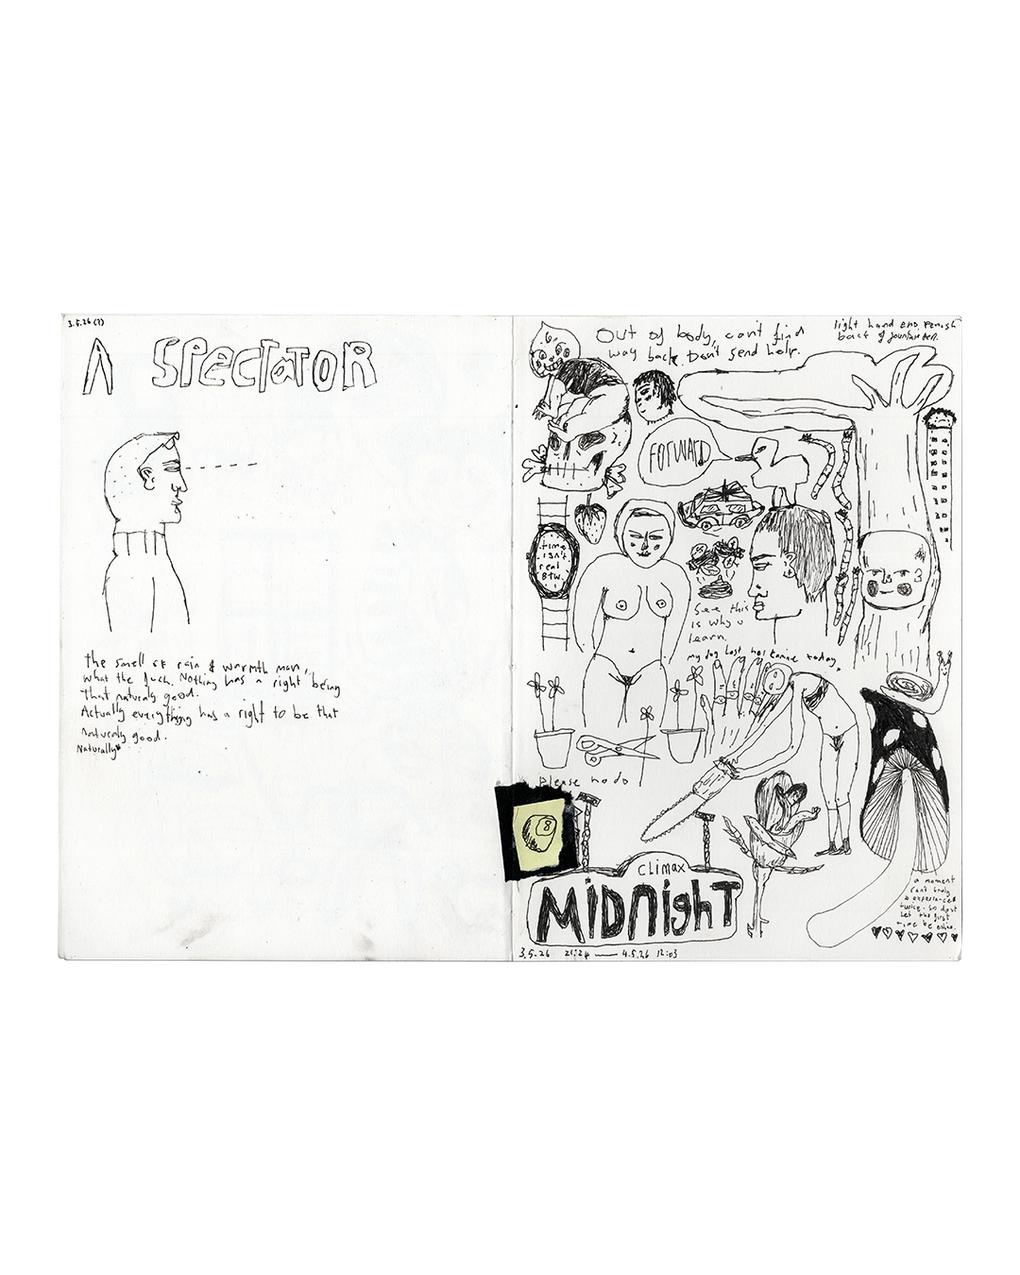 3.5.26 (7)
A SPECTATOR
the smell of rain & warmth man,
what the fuck. Nothing has a right being
that naturaly good.
Actually everything has a right to be that
naturaly good.
Naturally*
Out of body, can't find
way back. Don't send help.
light hand end,
back of fountain pen.
FORWARD
time
isn't
real
BTW.
See this
is why u
learn.
my dog lost his canine today.
Please no do
8
CLIMAX
MIDNIGHT
a moment
can't truly
be experienced
twice. So don't
let the first
time be
3.5.26 21:24 — 4.5.26 12:03